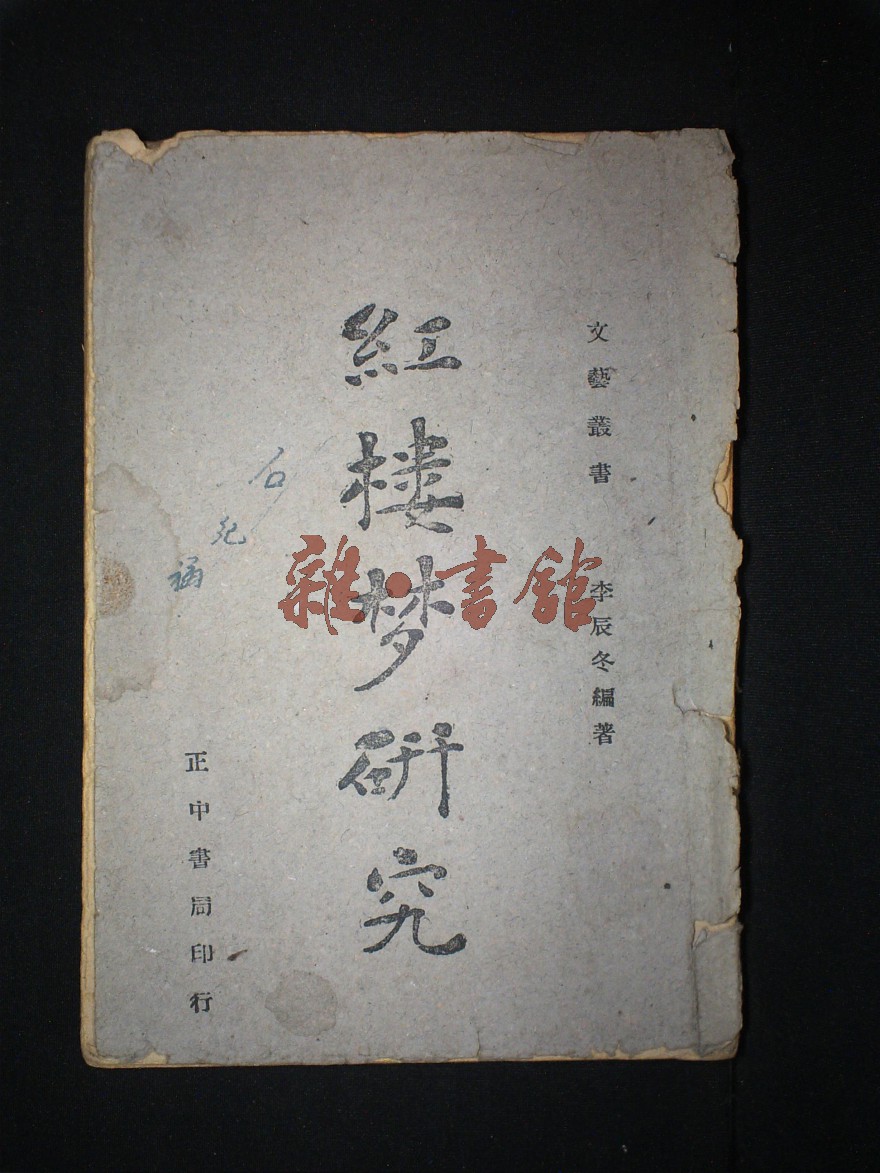 文藝叢書
李辰冬編著
紅樓梦研究
正中書局印行
雜·書館